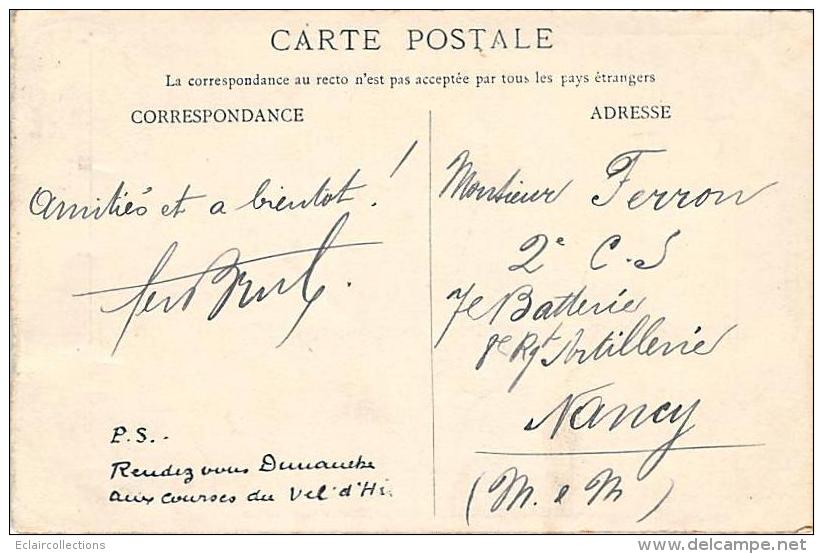 CARTE POSTALE
La correspondance au recto n'est pas acceptée par tous les pays étrangers
CORRESPONDANCE
Amitiés et a bientot !
P.S.-
Rendez vous Dimanche
aux courses du Vel' d'Hi
ADRESSE
Monsieur Ferron
2e C.S
7e Batterie
8e Rgt Artillerie
Nancy
(M. e M)
Eclaircollections
www.delcampe.net